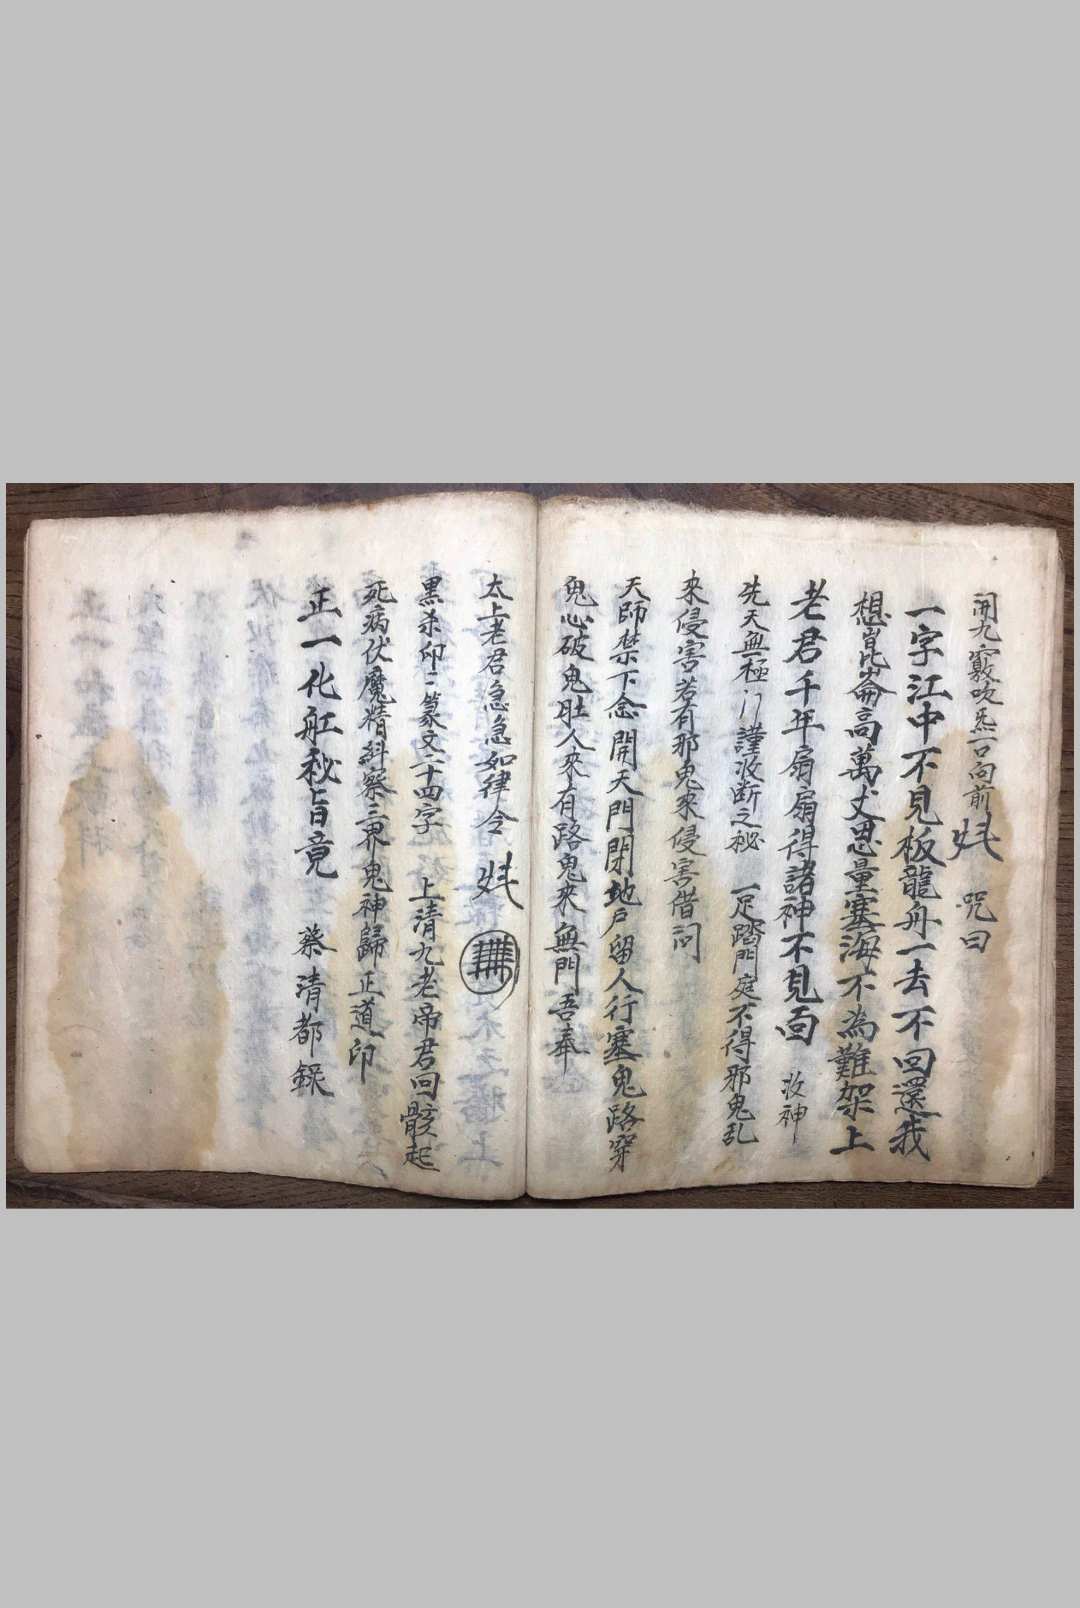 開九竅吹炁一口向前 咒曰
一字江中不見板龍舟一去不回還我
想崑崙高萬丈思量塞海不為難架上
老君千年扇扇得諸神不見面 收神
先天無極 謹收断之秘 一足踏門庭不得邪鬼乱
來侵害若有邪鬼來侵害借问
天師禁下念開天門閉地戶留人行塞鬼路穿
鬼心破鬼肚人來有路鬼來無門吾奉
太上老君急急如律令
黑杀印二篆文二十四字 上清九老帝君回骸起
死病伏魔精糾察三界鬼神歸正道印
正一化舡秘旨竟 蔡清都錄